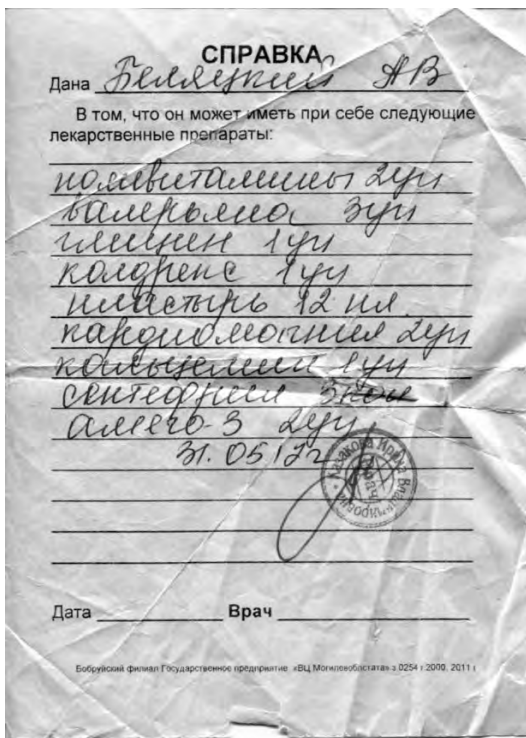 СПРАВКА
Дана Беляцкий АВ
В том, что он может иметь при себе следующие
лекарственные препараты:
поливитамины 2уп
валерьяна 3уп
глицин 1уп
колдрекс 1уп
пластырь 12 пл
кардиомагнил 2уп
кальцемин 1уп
омега-3 2уп
31.05.12г
Казакова Ирина Владимировна
Врач
Дата Врач
Бобруйский филиал Государственное предприятие «ВЦ Могилевоблстата» з 0254 т 2000. 2011 г